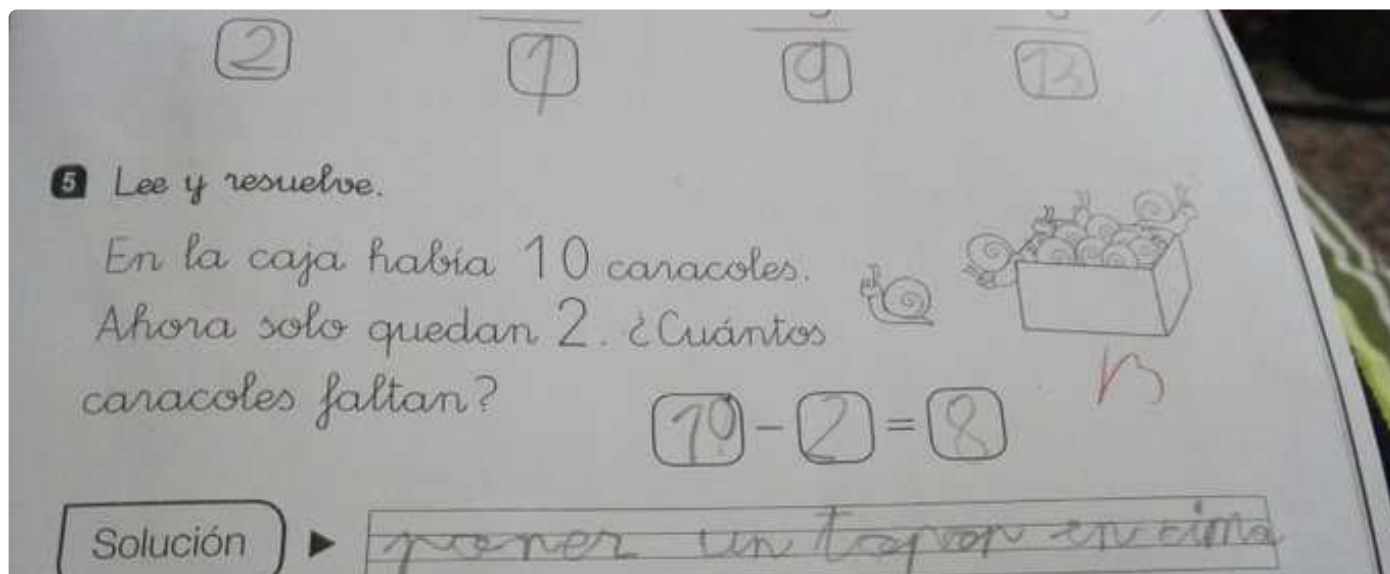 2 7 9 13
5 Lee y resuelve.
En la caja había 10 caracoles.
Ahora solo quedan 2. ¿Cuántos
caracoles faltan?
10 - 2 = 8
Solución ▶ poner un tapon encima